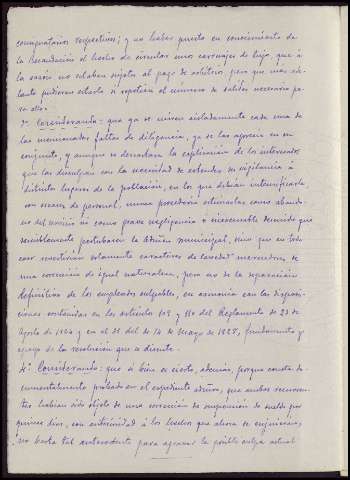 comignatarios respectivos; y no haber puesto en conocimiento de
la Recaudación el hecho de circular unos carruajes de lujo, que á
la sazón no estaban sujetos al pago de arbitrios, pero que mas ade-
lante pudieran estarlo si repetían el número de salidas necesario pa-
ra ello.
3º Considerando: que ya se miren aisladamente cada una de
las mencionadas faltas de diligencia, ya se las aprecie en su
conjunto, y aunque se desechara la explicación de los interesados
que las disculpan con la necesidad de extender su vigilancia á
distintos lugares de la población, en los que debían intensificarla
con escasez de personal, nunca procedería estimarlas como abando-
no del servicio ni como grave negligencia ó inexcusable descuido que
sensiblemente perturbaran la Admón municipal, sino que en todo
caso revestirían solamente caracteres de levedad merecedoras de
una corrección de igual naturaleza, pero no de la separación
definitiva de los empleados culpables, en armonía con las disposi-
ciones contenidas en los artículos 109 y 110 del Reglamento de 23 de
Agosto de 1924 y en el 31 del de 14 de Mayo de 1928, fundamento y
apoyo de la resolución que se discute.
4º Considerando: que si bien es cierto, además, porque consta do-
cumentalmente probado en el expediente admvo, que ambos recurren-
tes habían sido objeto de una corrección de suspensión de sueldo por
quince días, con anterioridad á los hechos que ahora se enjuician,
no basta tal antecedente para agravar la posible culpa actual